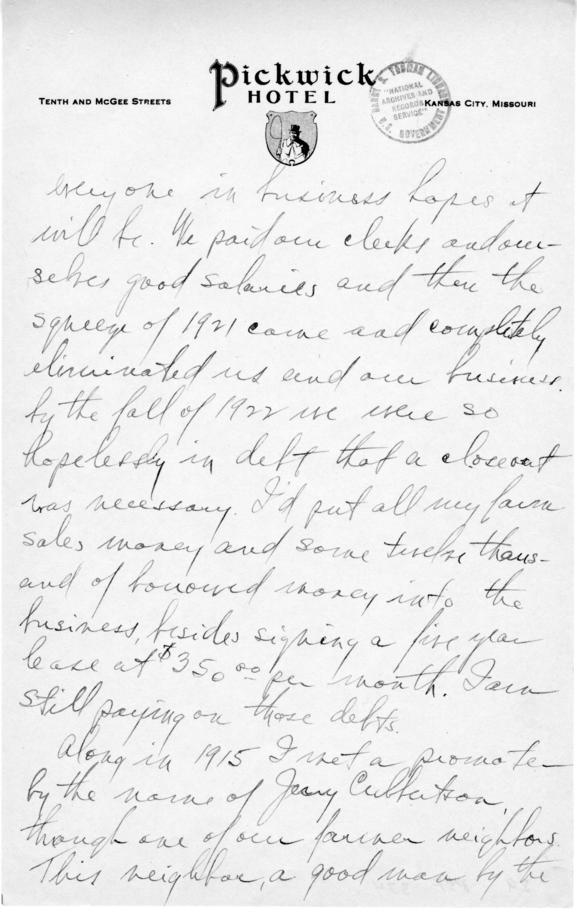 Pickwick
HOTEL
TENTH AND MCGEE STREETS
KANSAS CITY, MISSOURI
HARRY S. TRUMAN LIBRARY
"NATIONAL
ARCHIVES AND
RECORDS
SERVICE"
U.S. GOVERNMENT
everyone in business hopes it
will be. We paid our clerks and our-
selves good salaries and then the
squeeze of 1921 came and completely
eliminated us and our business.
by the fall of 1922 we were so
hopelessly in debt that a closeout
was necessary. I'd put all my farm
sales money and some twelve thous-
and of borrowed money into the
business, besides signing a five year
lease at $350.00 per month. I am
still paying on those debts.
Along in 1915 I met a promote-
by the name of Jerry Culbertson,
through one of our farmer neighbors.
This neighbor, a good man by the